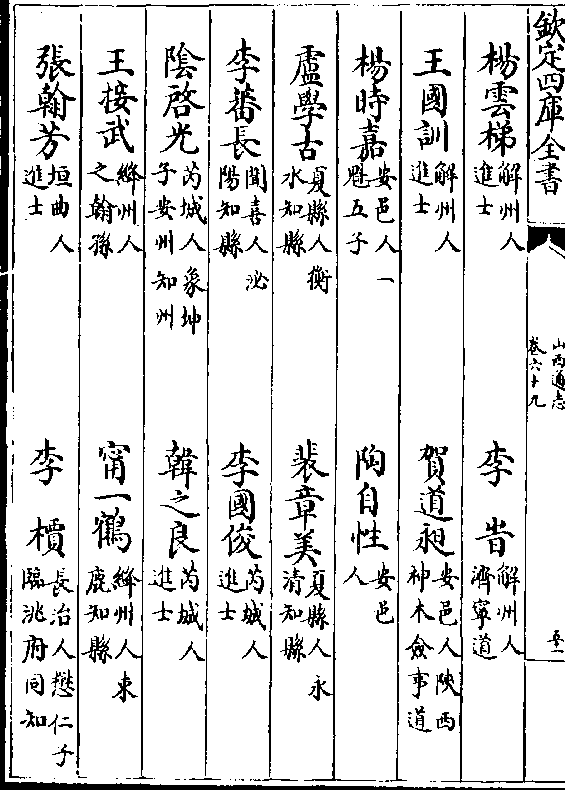 欽定四庫全書
山西通志
卷六十九
楊雲梯 解州人進士
李 解州人濟寧道
王國訓 解州人進士
賀道昶 安邑人陝西神木僉事道
楊時嘉 安邑人一魁五子
陶自性 安邑人
盧學古 夏縣人衡水知縣
裴章美 夏縣人永清知縣
李蕃長 聞喜人泌陽知縣
李國俊 芮城人進士
陰啓光 芮城人象坤子安州知州
韓之良 芮城人進士
王接武 絳州人之翰孫
甯一鶴 絳州人束鹿知縣
張翰芳 垣曲人進士
李櫝 長治人懋仁子臨洮府同知